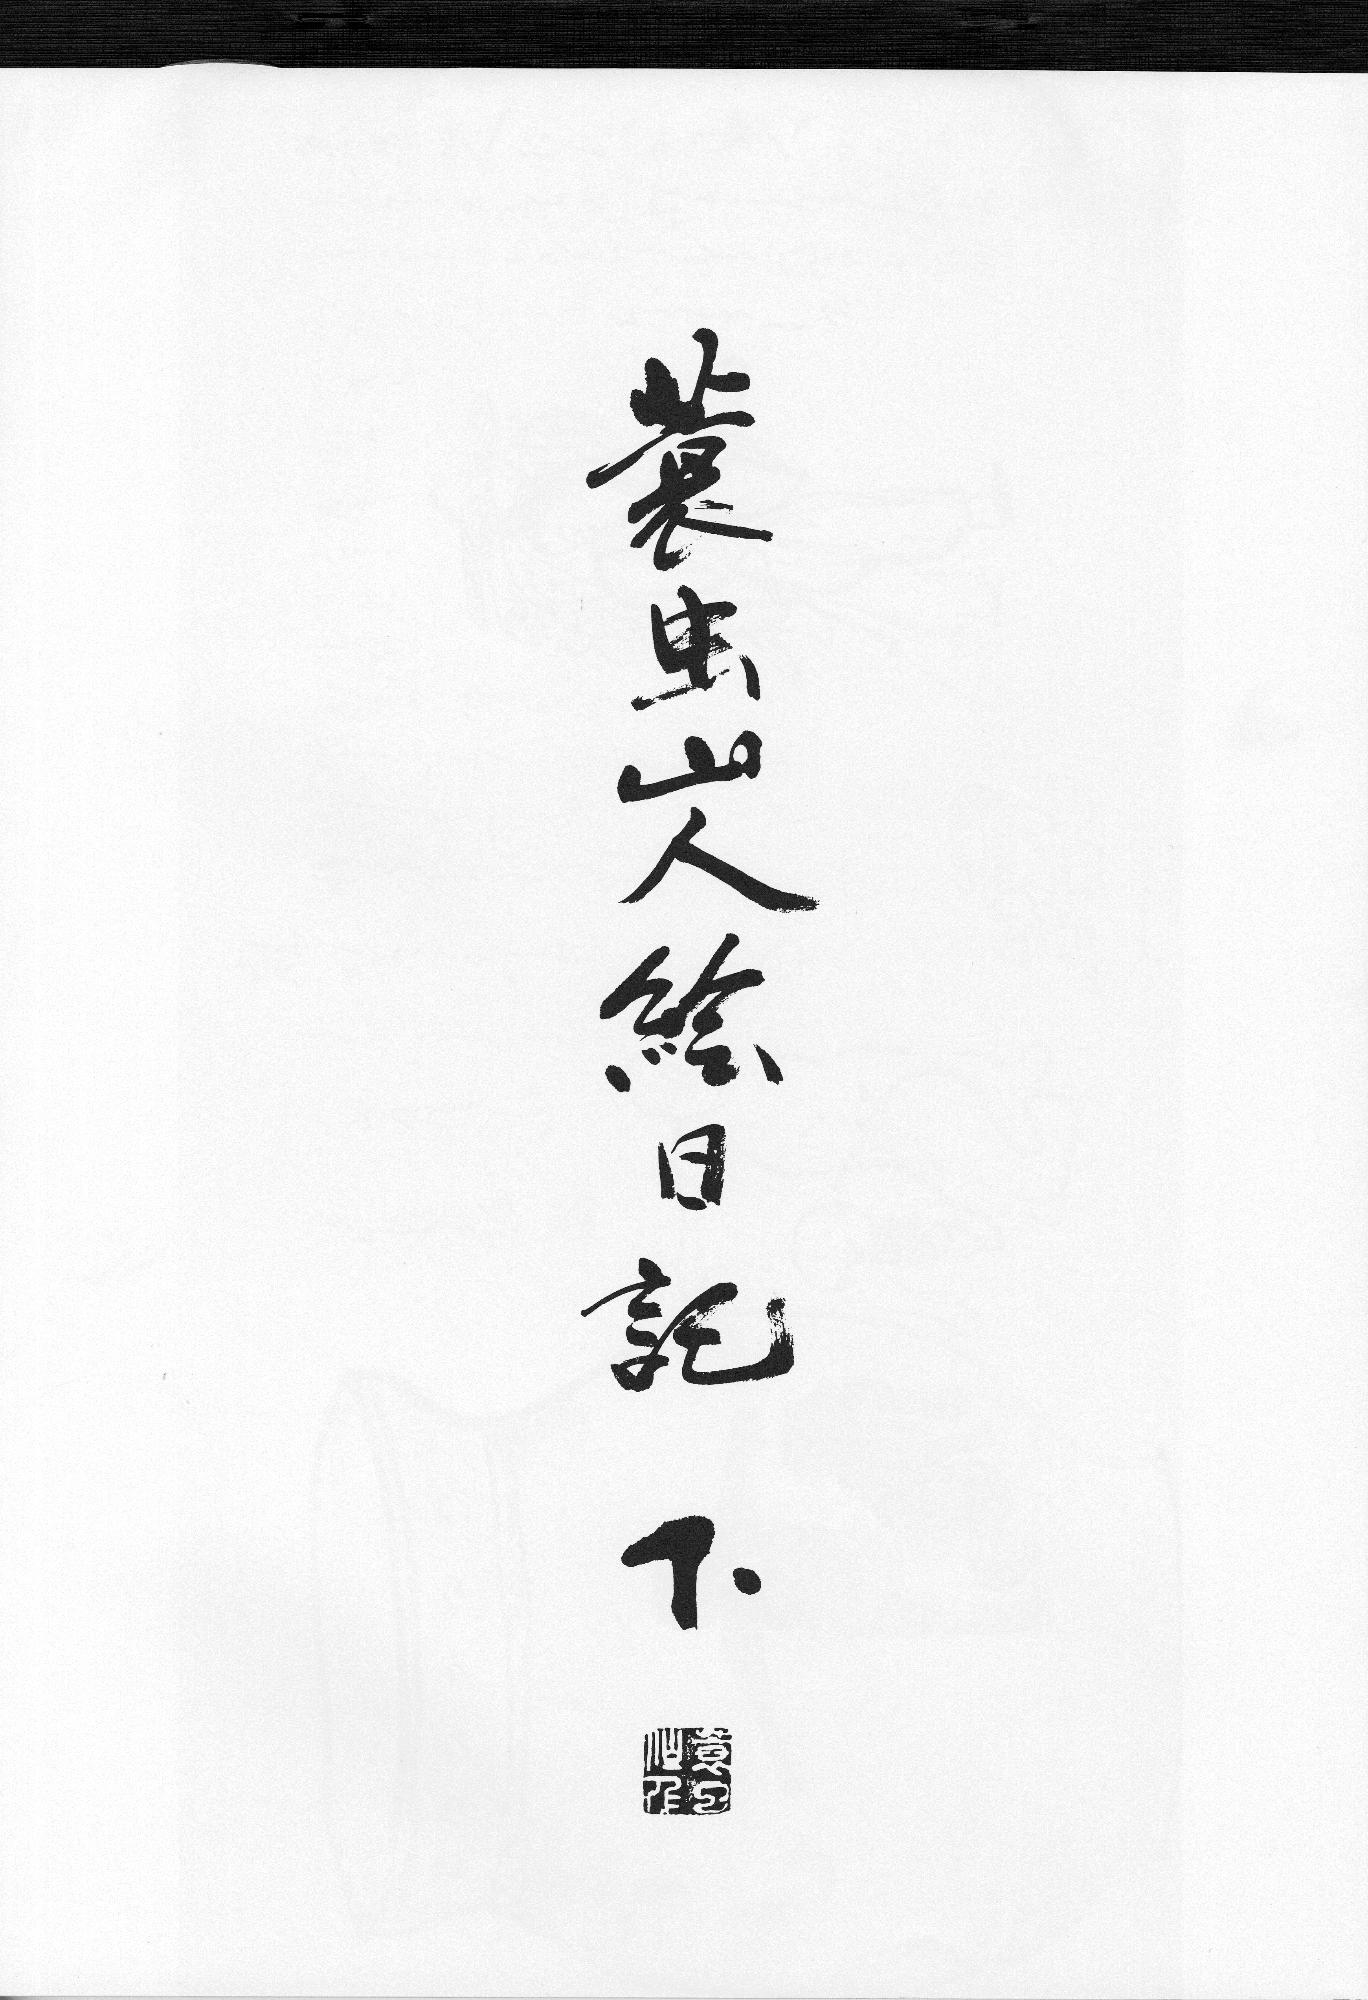 蓑虫山人絵日記 下